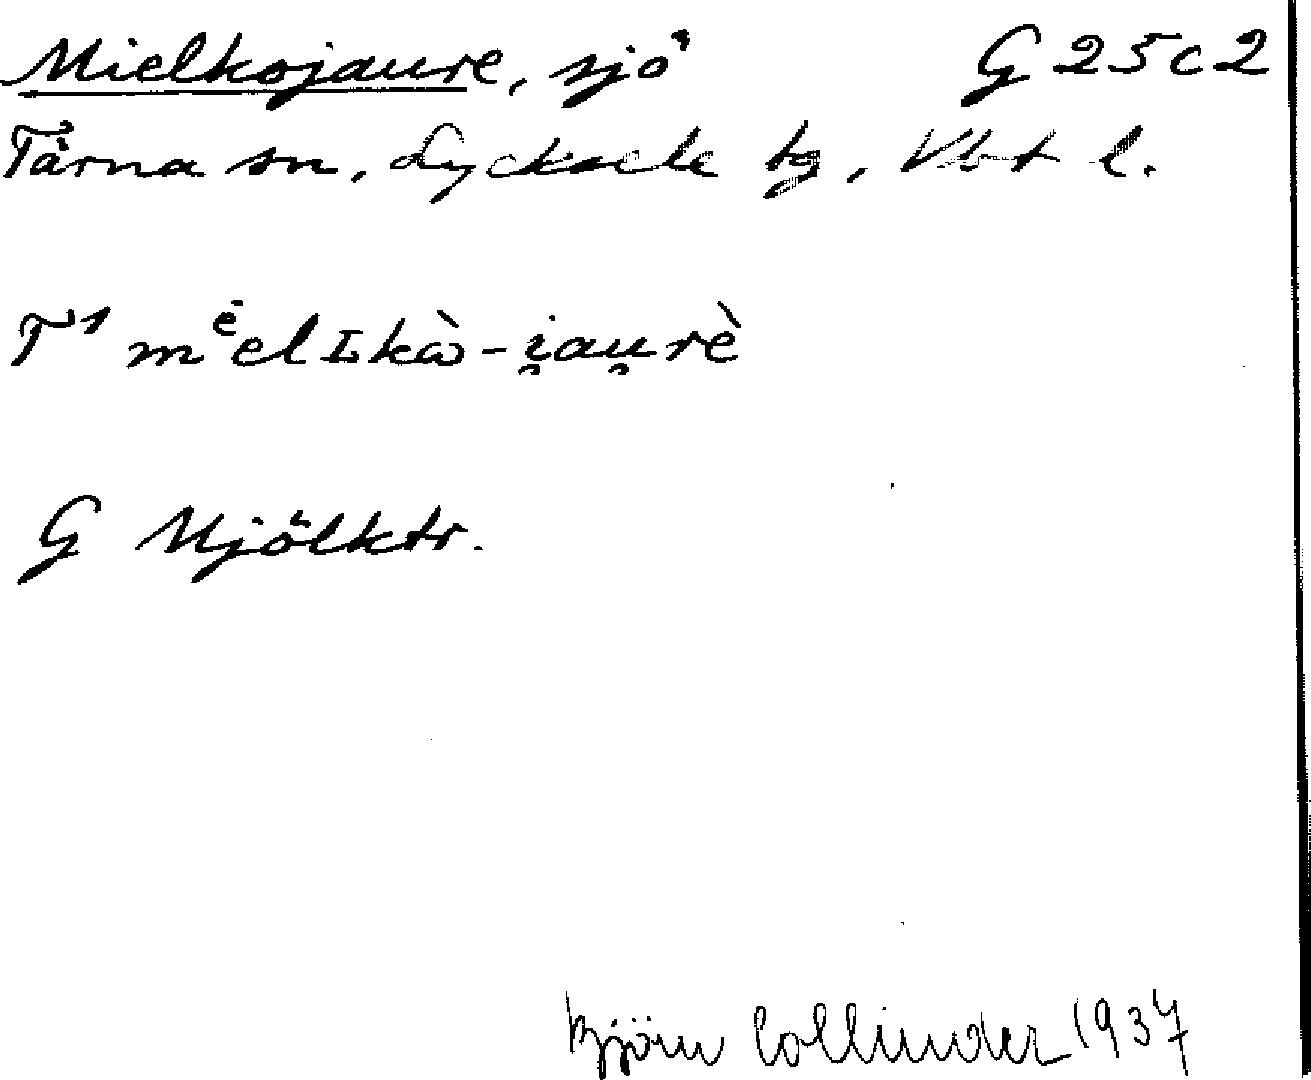 Mielkojaure, sjö G 25 c 2
Tärna sn, Lycksele tg, Vbt l.
T¹ mᵉ̇elɪkὼ-i̯au̯rè
G Mjölktr.
Björn Collinder 1937